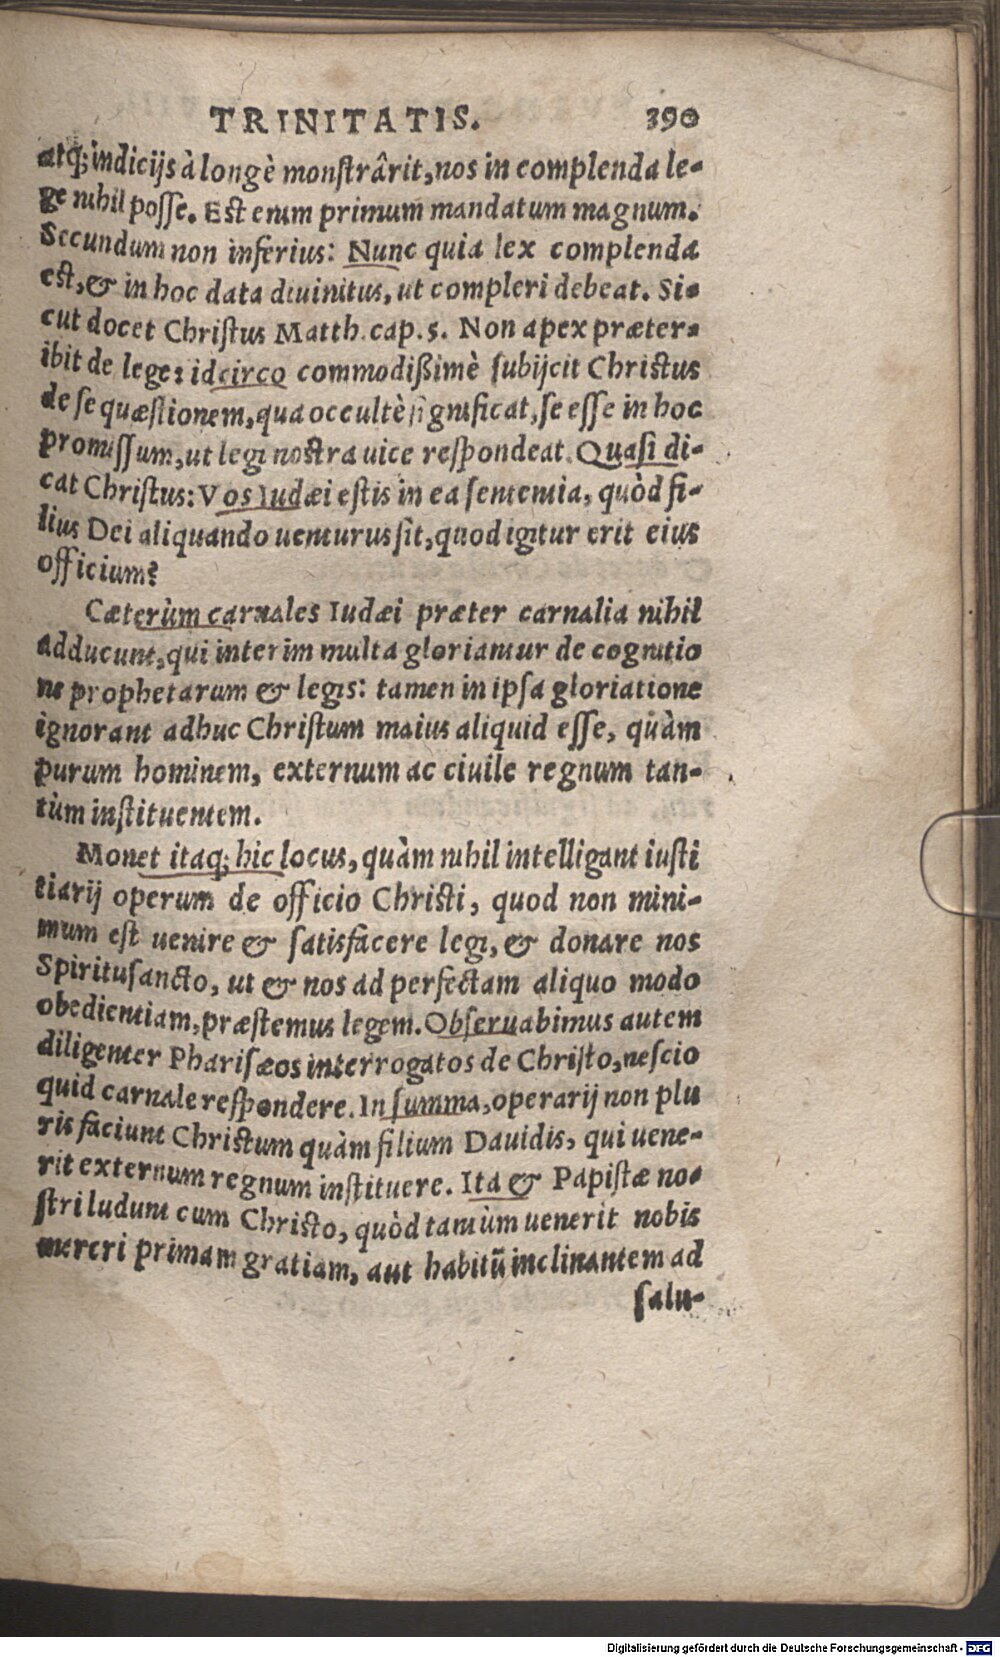 TRINITATIS. 390
atq; indicijs à longè monſtrârit, nos in complenda le-
ge nihil poſſe. Eſt enim primum mandatum magnum.
Secundum non inferius: Nunc quia lex complenda
eſt, & in hoc data diuinitus, ut compleri debeat. Si-
cut docet Chriſtus Matth. cap. 5. Non apex præter-
ibit de lege: idcirco commodißimè ſubijcit Chriſtus
de ſe quæſtionem, qua occultè ſignificat, ſe eſſe in hoc
promiſſum, ut legi noſtra uice reſpondeat. Quaſi di-
cat Chriſtus: Vos Iudæi eſtis in ea ſententia, quòd fi-
lius Dei aliquando uenturus ſit, quod igitur erit eius
officium?
Cæterùm carnales Iudæi præter carnalia nihil
adducunt, qui interim multa gloriantur de cognitio
ne prophetarum & legis: tamen in ipſa gloriatione
ignorant adhuc Chriſtum maius aliquid eſſe, quàm
purum hominem, externum ac ciuile regnum tan-
tùm inſtituentem.
Monet itaq; hic locus, quàm nihil intelligant iuſti
tiarij operum de officio Chriſti, quod non mini-
mum eſt uenire & ſatisfacere legi, & donare nos
Spirituſancto, ut & nos ad perfectam aliquo modo
obedientiam, præſtemus legem. Obſeruabimus autem
diligenter Phariſæos interrogatos de Chriſto, neſcio
quid carnale reſpondere. In ſumma, operarij non plu
ris faciunt Chriſtum quàm filium Dauidis, qui uene-
rit externum regnum inſtituere. Ita & Papiſtæ no-
ſtri ludunt cum Chriſto, quòd tantùm uenerit nobis
mereri primam gratiam, aut habitū inclinantem ad
ſalu-
Digitalisierung gefördert durch die Deutsche Forschungsgemeinschaft - DFG